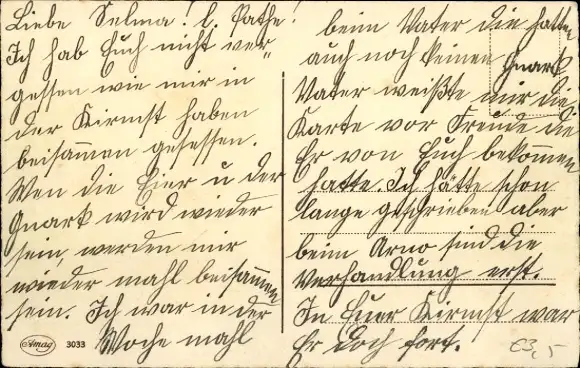 Liebe Selma! l. Pathe!
Ich hab Euch nicht ver-
gessen wie mir in
der Kirmst haben
beisammen gesessen.
Wen die Eier u der
Quark wird wieder
sein, werden mir
wieder mahl beisammen
sein. Ich war in der
Woche mahl
Amag 3033
beim Vater die hatten
auch noch keinen Quark
Vater weißte mir die
Karte vor Freude die
Er von Euch bekommen
hatte. Ich hätte schon
lange geschrieben aber
beim Arno sind die
Verhandlung erst.
In Euer Kirmst war
Er doch fort.